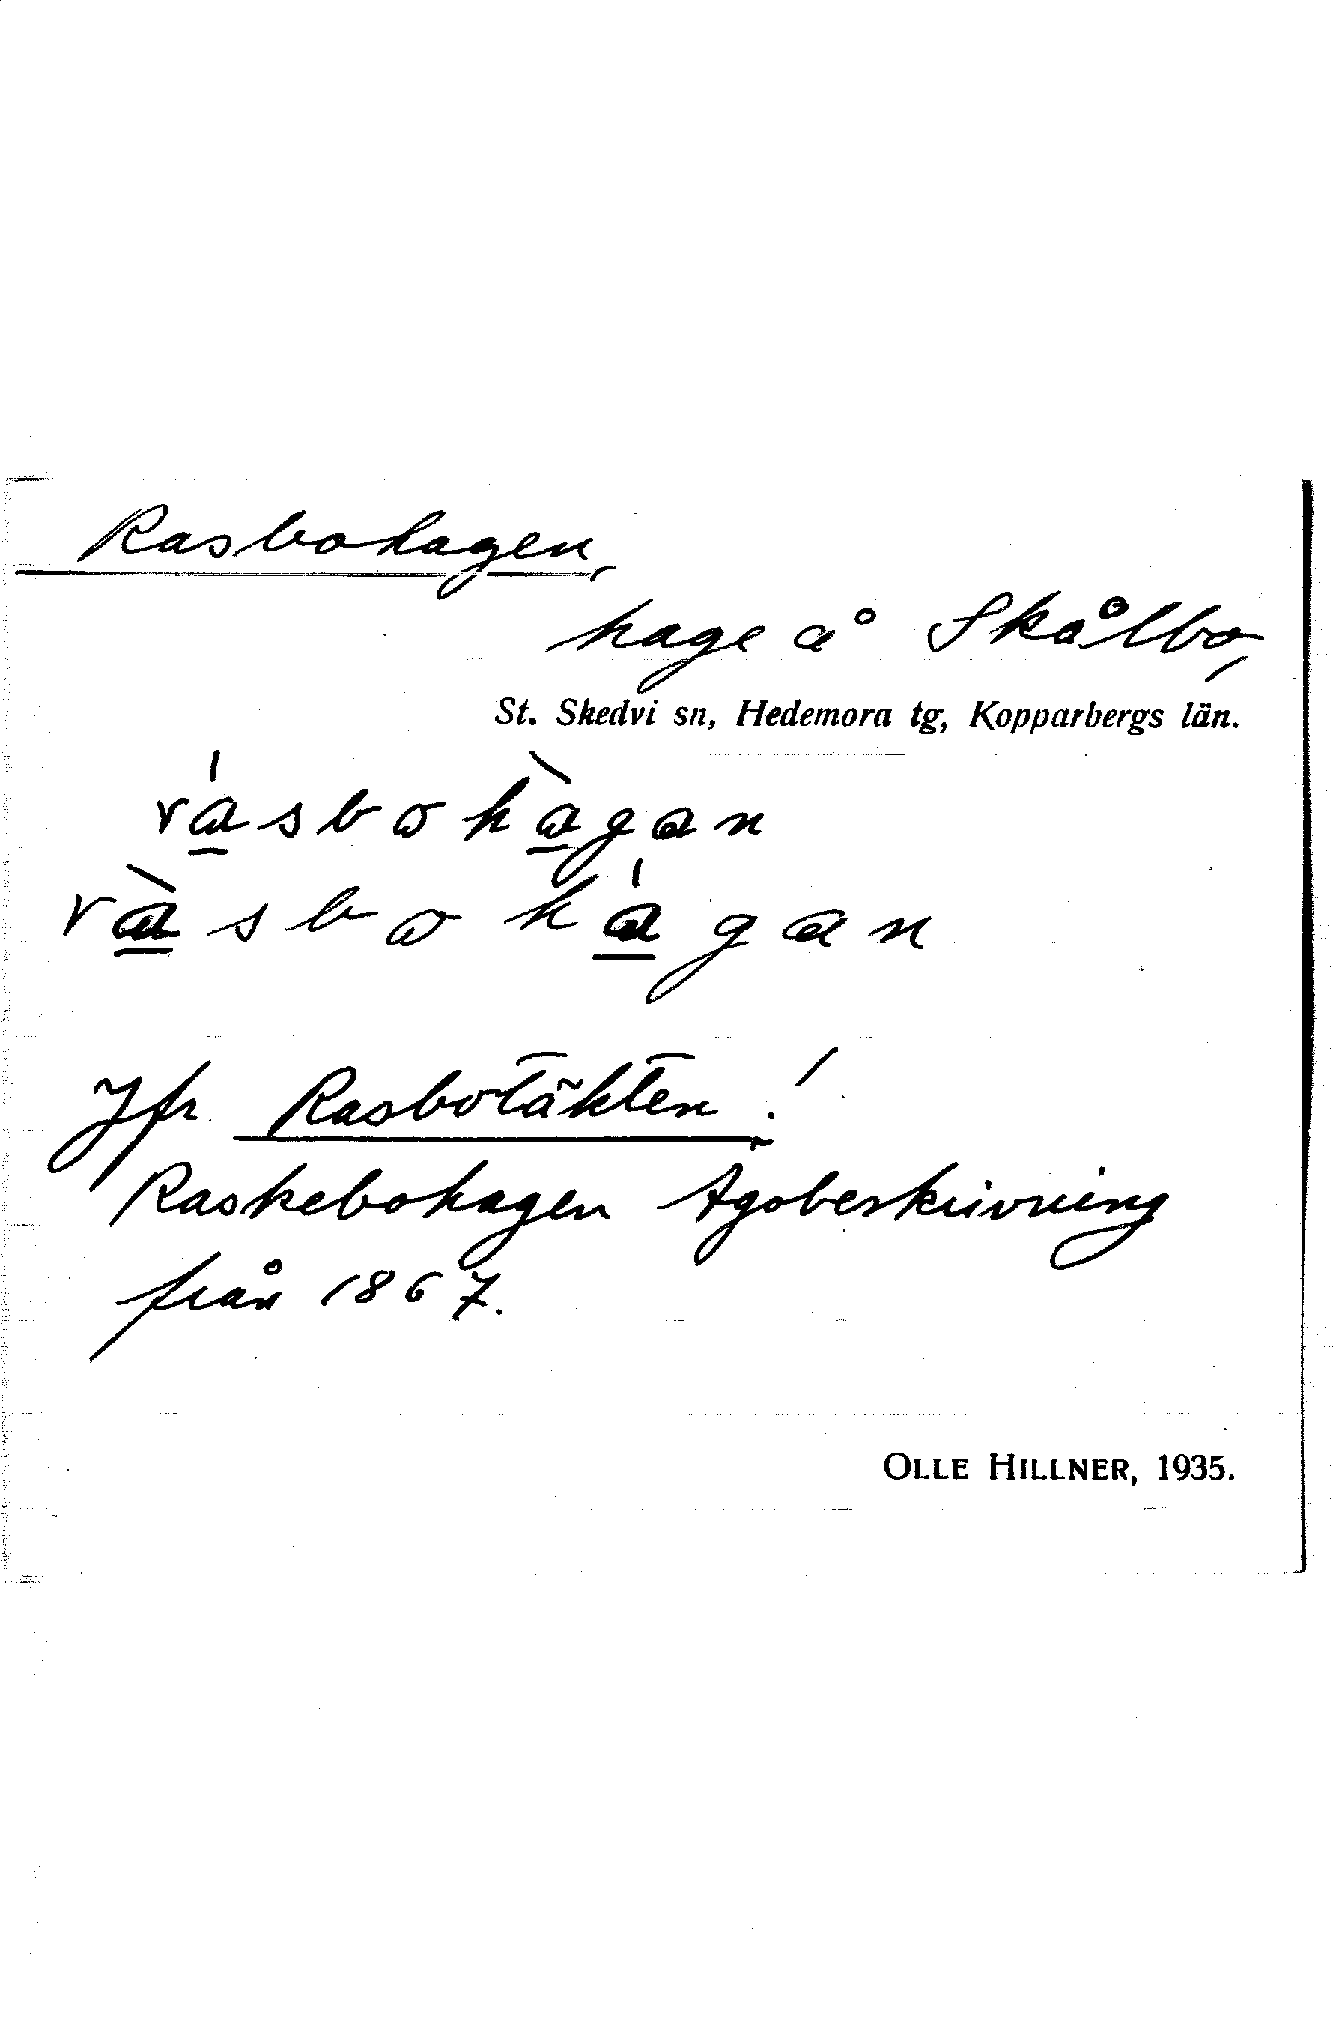 Rasbohagen,
hage å Skålbo,
St. Skedvi sn, Hedemora tg, Kopparbergs län.
rásbohàgan
ràsbohágan
Jfr Rasbotäkten!
Raskebohagen Ägobeskrivning
från 1867.
OLLE HILLNER, 1935.